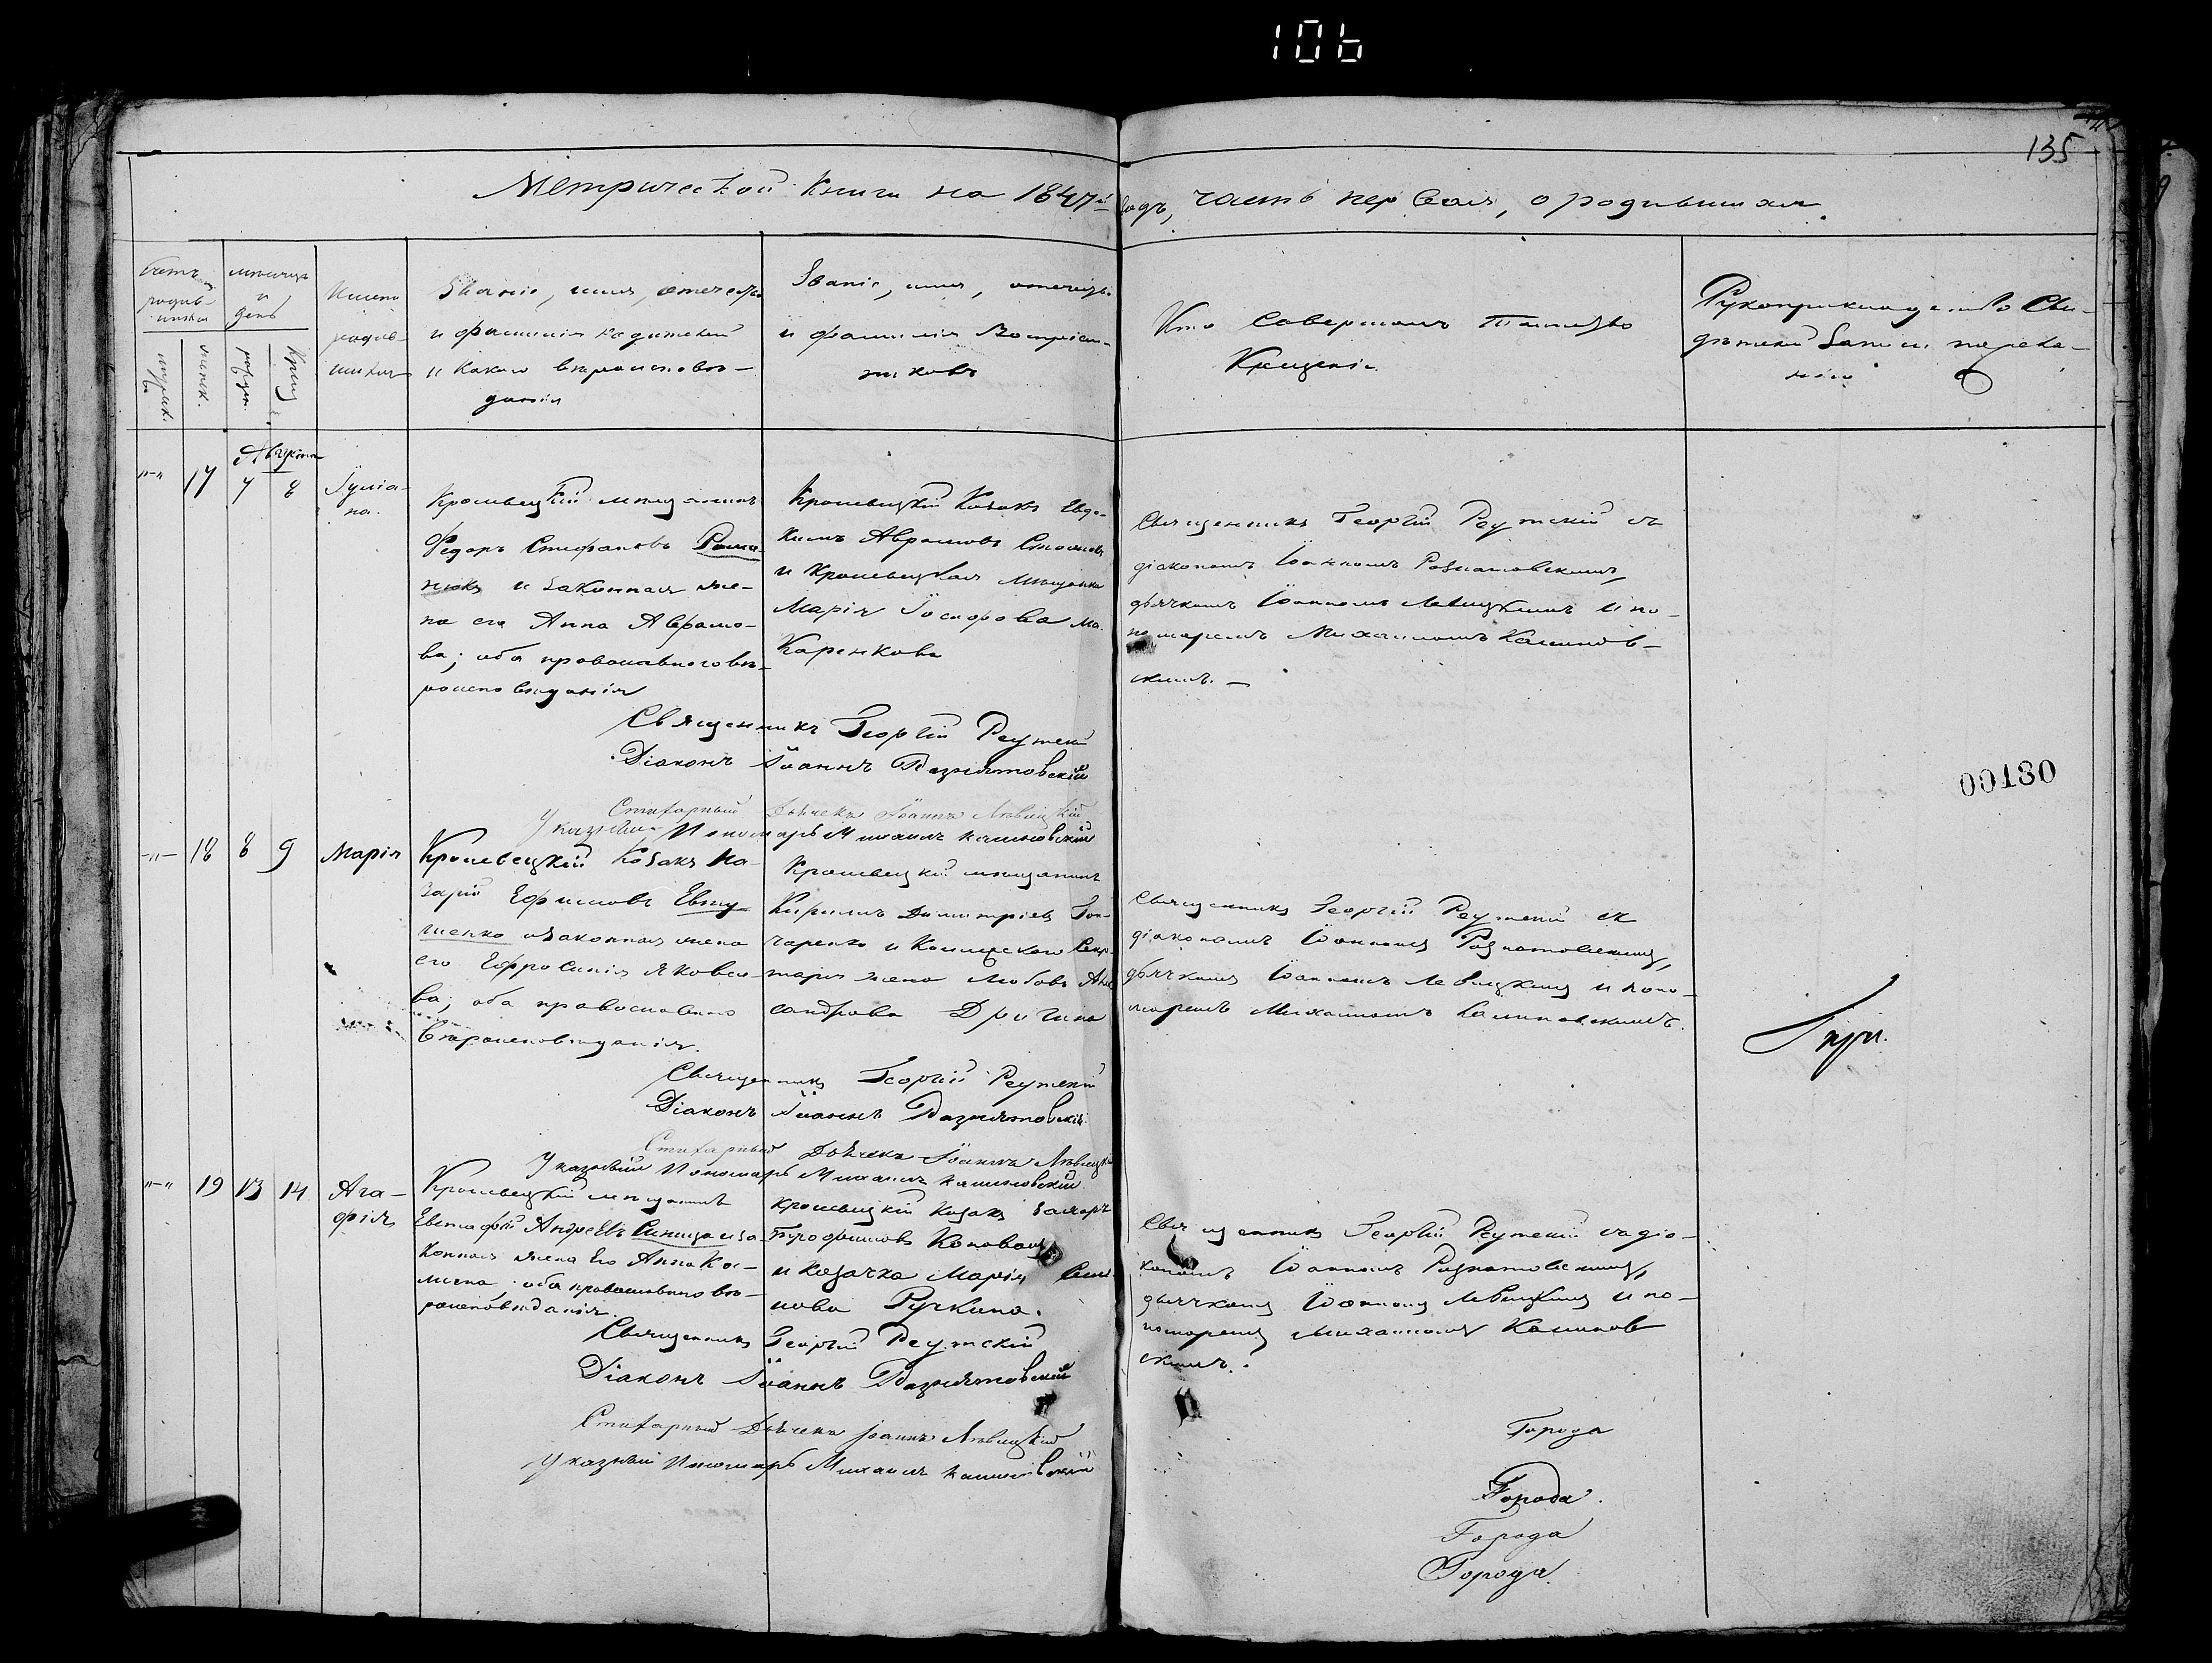 106
135
Метрической Книги на 1847й годъ, часть первая, о родившихся.
Счетъ родив-
шихся
мужск.
женск.
мѣсяцъ
и
день
рожден.
Крещ.
Имена
родив-
шихся
Званіе, имя, отечество
и фамилія Родителей
и какого вѣроисповѣ-
данія
Званіе, имя, отечест.
и фамилія Воспріем-
никовъ
Кто совершалъ Таинство
Крещенія
Рукоприкладство Сви-
дѣтелей Записи по жела-
нію
Августа
17
7
8
Іуліа-
на.
Кролевецкій мѣщанинъ
Федоръ Стефановъ Рома-
нюкъ и законная же-
на его Анна Аврамо-
ва; оба православного вѣ-
роисповѣданія
Кролевецкій Козакъ Евдо-
кимъ Аврамовъ
и Кролевецкая Мѣщанка
Марія Ма-
каренкова
Священникъ Георгій Реутскій съ
діакономъ Іоанномъ Рознатовскимъ,
дьячкомъ Іоанномъ Левицкимъ и по-
номаремъ Михаиломъ Калинов-
скимъ. —
Священникъ Георгій Реутскій
Діаконъ Іоаннъ Разнятовскій
00180
Стихарный Дьячекъ Іоаннъ Львицкій
Указный Пономарь Михаилъ Калиновскій
18
8
9
Марія
Кролевецкій Козакъ На-
зарій Ефимовъ Евту-
шенко и Законная жена
его Ефросинія Яковле-
ва; оба православного
Вѣроисповѣданія.
Кролевецкій мѣщанинъ
Кирилъ Димитріевъ Гон-
чаренко и Секре-
таря жена Любовь Алек-
сандрова
Священникъ Георгій Реутскій съ
діакономъ Іоанномъ Рознатовскимъ,
дьячкомъ Іоанномъ Левицкимъ и поно-
маремъ Михаиломъ Калиновскимъ.
Священникъ Георгій Реутскій
Діаконъ Іоаннъ Разнятовскій.
Стихарный Дьячекъ Іоаннъ Львицкій
Указный Пономарь Михаилъ Калиновскій.
19
13
14
Ага-
фія
Кролевецкій мѣщанинъ
Евстафій Андреевъ Синица и за-
конная жена Его Анна
оба православного вѣ-
роисповѣданія.
Кролевецкій Козакъ
Трофимовъ Коноваль
и козачка Марія Семе-
нова Ручкина.
Священникъ Георгій Реутскій съ діа-
кономъ Іоанномъ Рознатовскимъ,
дьячкомъ Іоанномъ Левицкимъ и по-
номаремъ Михаиломъ Калинов
скимъ.
Священникъ Георгій Реутскій
Діаконъ Іоаннъ Разнятовскій
Стихарный Дьячекъ Іоаннъ Львицкій
Указный Пономарь Михаилъ Калиновскій
Города
Города.
Города
Города.